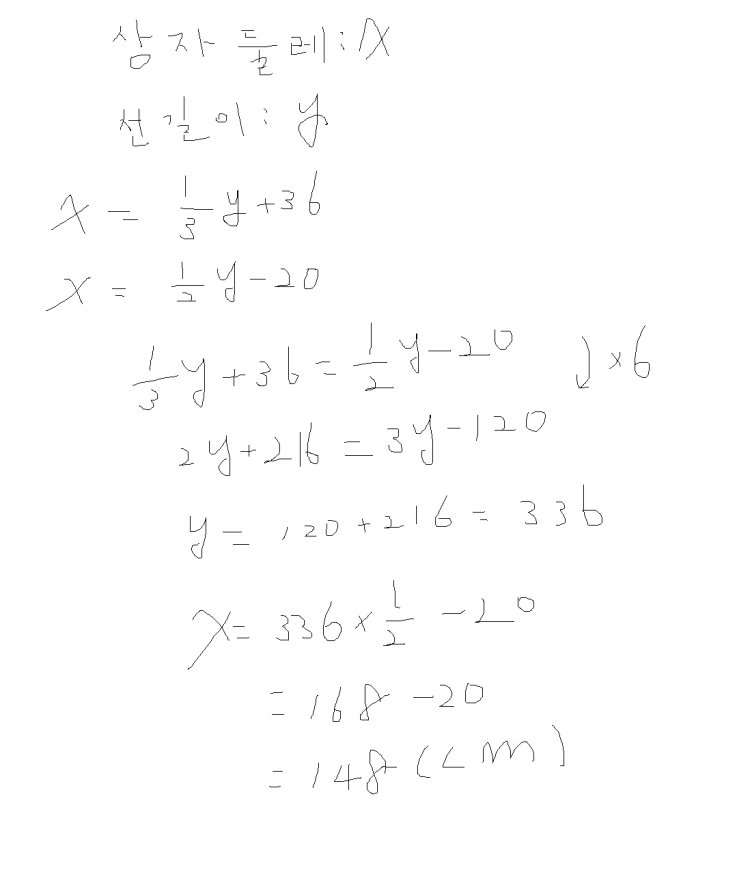 상자 둘레 : x
선길이 : y
x = 1/3 y + 36
x = 1/2 y - 20
1/3 y + 36 = 1/2 y - 20 ) × 6
2y + 216 = 3y - 120
y = 120 + 216 = 336
x = 336 × 1/2 - 20
= 168 - 20
= 148 (cm)